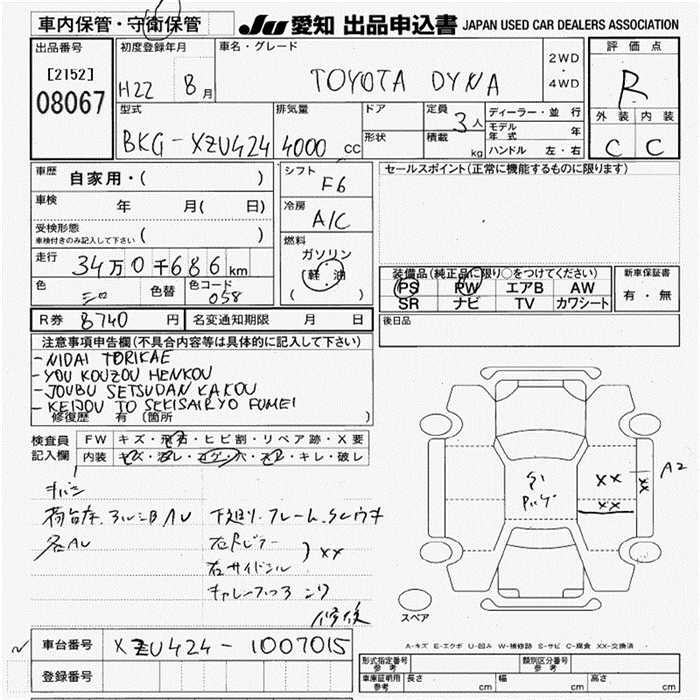 車内保管・守衛保管
JU 愛知 出品申込書 JAPAN USED CAR DEALERS ASSOCIATION
出品番号
[2152]
08067
初度登録年月
H22 8月
車名・グレード
TOYOTA DYNA
2WD
・
4WD
評価点
R
型式
BKG-XZU424
排気量
4000 CC
ドア
形状
定員
3人
積載
kg
ディーラー・並行
モデル年式 年
ハンドル 左・右
外装 内装
C C
車歴 自家用・( )
車検 年 月( 日)
受検形態
車検付きのみ記入して下さい ( )
走行 34万0千686km
色 シロ 色替 色コード 058
シフト
F6
冷房
A/C
燃料
ガソリン
(軽油)
( )
セールスポイント(正常に機能するものに限ります)
装備品(純正品に限り○をつけてください)
PS PW エアB AW
SR ナビ TV カワシート
新車保証書
有・無
R券 8740 円 名変通知期限 月 日
後日品
注意事項申告欄(不具合内容等は具体的に記入して下さい)
-NIDAI TORIKAE
-YOU KOUZOU HENKOU
-JOUBU SETSUDAN KAKOU
-KEIJOU TO SEKISAIRYO FUMEI
修復歴 有(箇所 )
検査員記入欄
FW キズ・飛石・ヒビ割・リペア跡・X要
内装 キズ・汚レ・コゲ・穴・スレ・キレ・破レ
各AU
右サイドシル
XX
修復
XX
XX
XX
A2
スペア
A-キズ E-エクボ U-凹み W-補修跡 S-サビ C-腐食 XX-交換済
車台番号 XZU424-1007015
登録番号
形式指定番号 参考
類別区分番号 参考
車庫証明用 参考
長さ cm 幅 cm 高さ cm